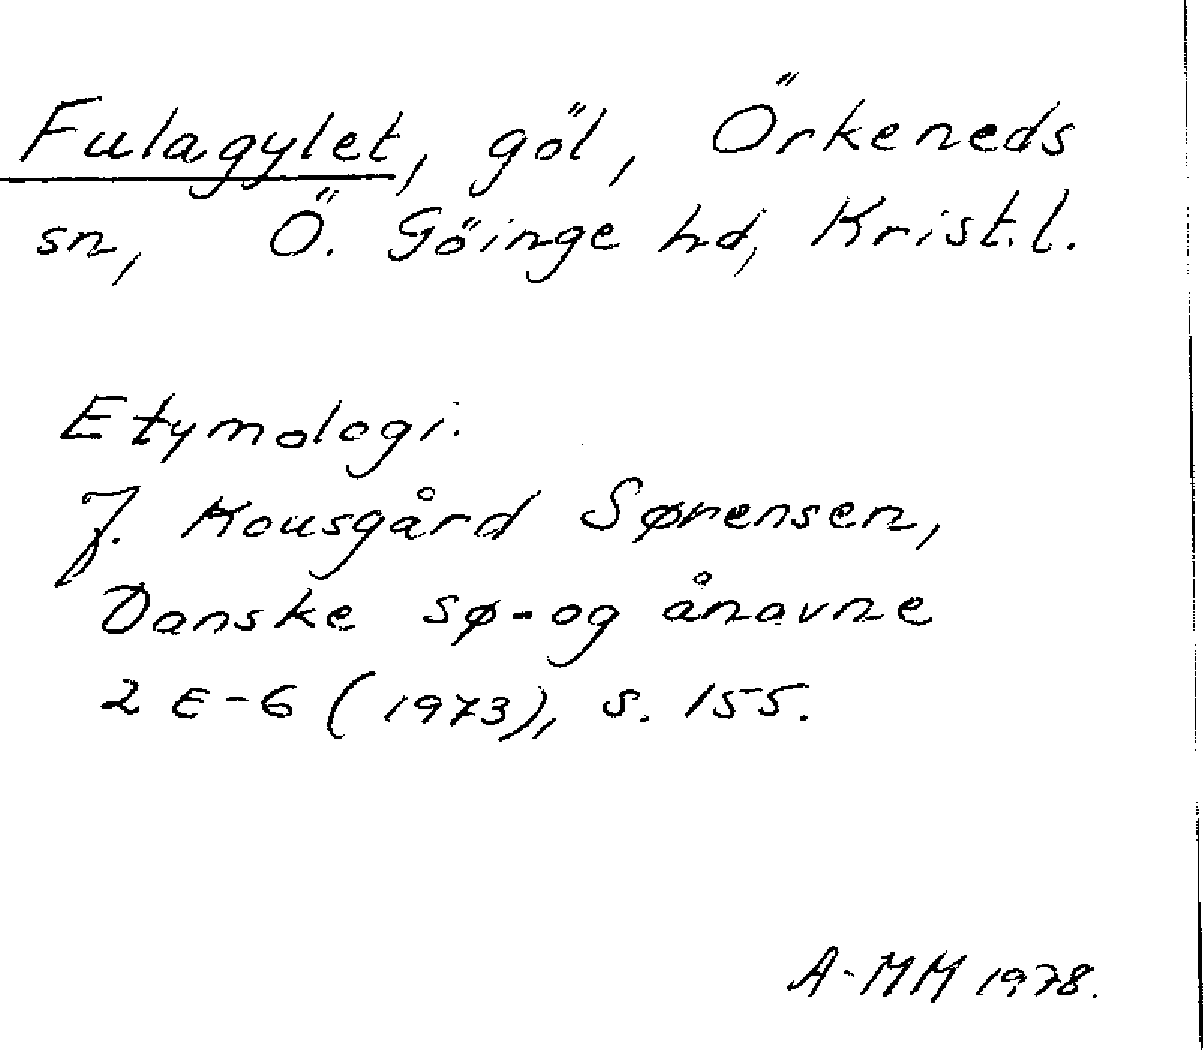 Fulagylet, göl, Örkeneds
sn, Ö. Göinge hd, Krist.l.
Etymologi.
J. Kousgård Sørensen,
Danske sø- og ånavne
2 E-G (1973), s. 155.
A-MM 1978.